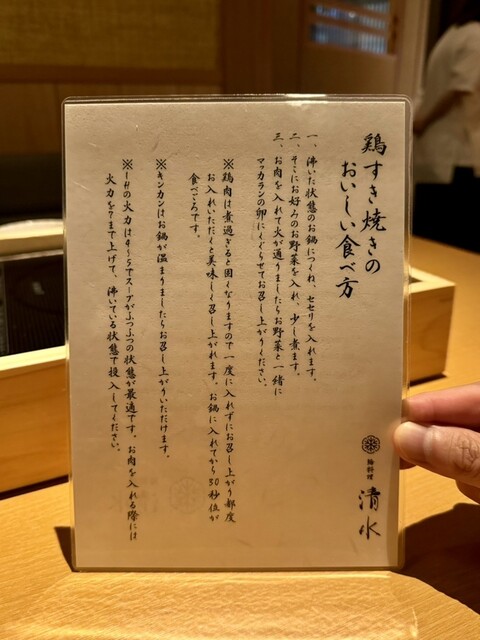 鶏すき焼きの
おいしい食べ方
一、沸いた状態のお鍋につくね、セセリを入れます。
二、そこにお好みのお野菜を入れ、少し煮ます。
三、お肉を入れて火が通りましたらお野菜と一緒に
マッカランの卵にくぐらせてお召し上がりください。
※鶏肉は煮過ぎると固くなりますので一度に入れずにお召し上がり都度
お入れいただくと美味しく召し上がれます。お鍋に入れてから30秒位が
食べごろです。
※キンカンはお鍋が温まりましたらお召し上がりいただけます。
※IHの火力は4~5でスープがふつふつの状態が最適です。お肉を入れる際には
火力を7まで上げて、沸いている状態で投入してください。
鶏料理
清水